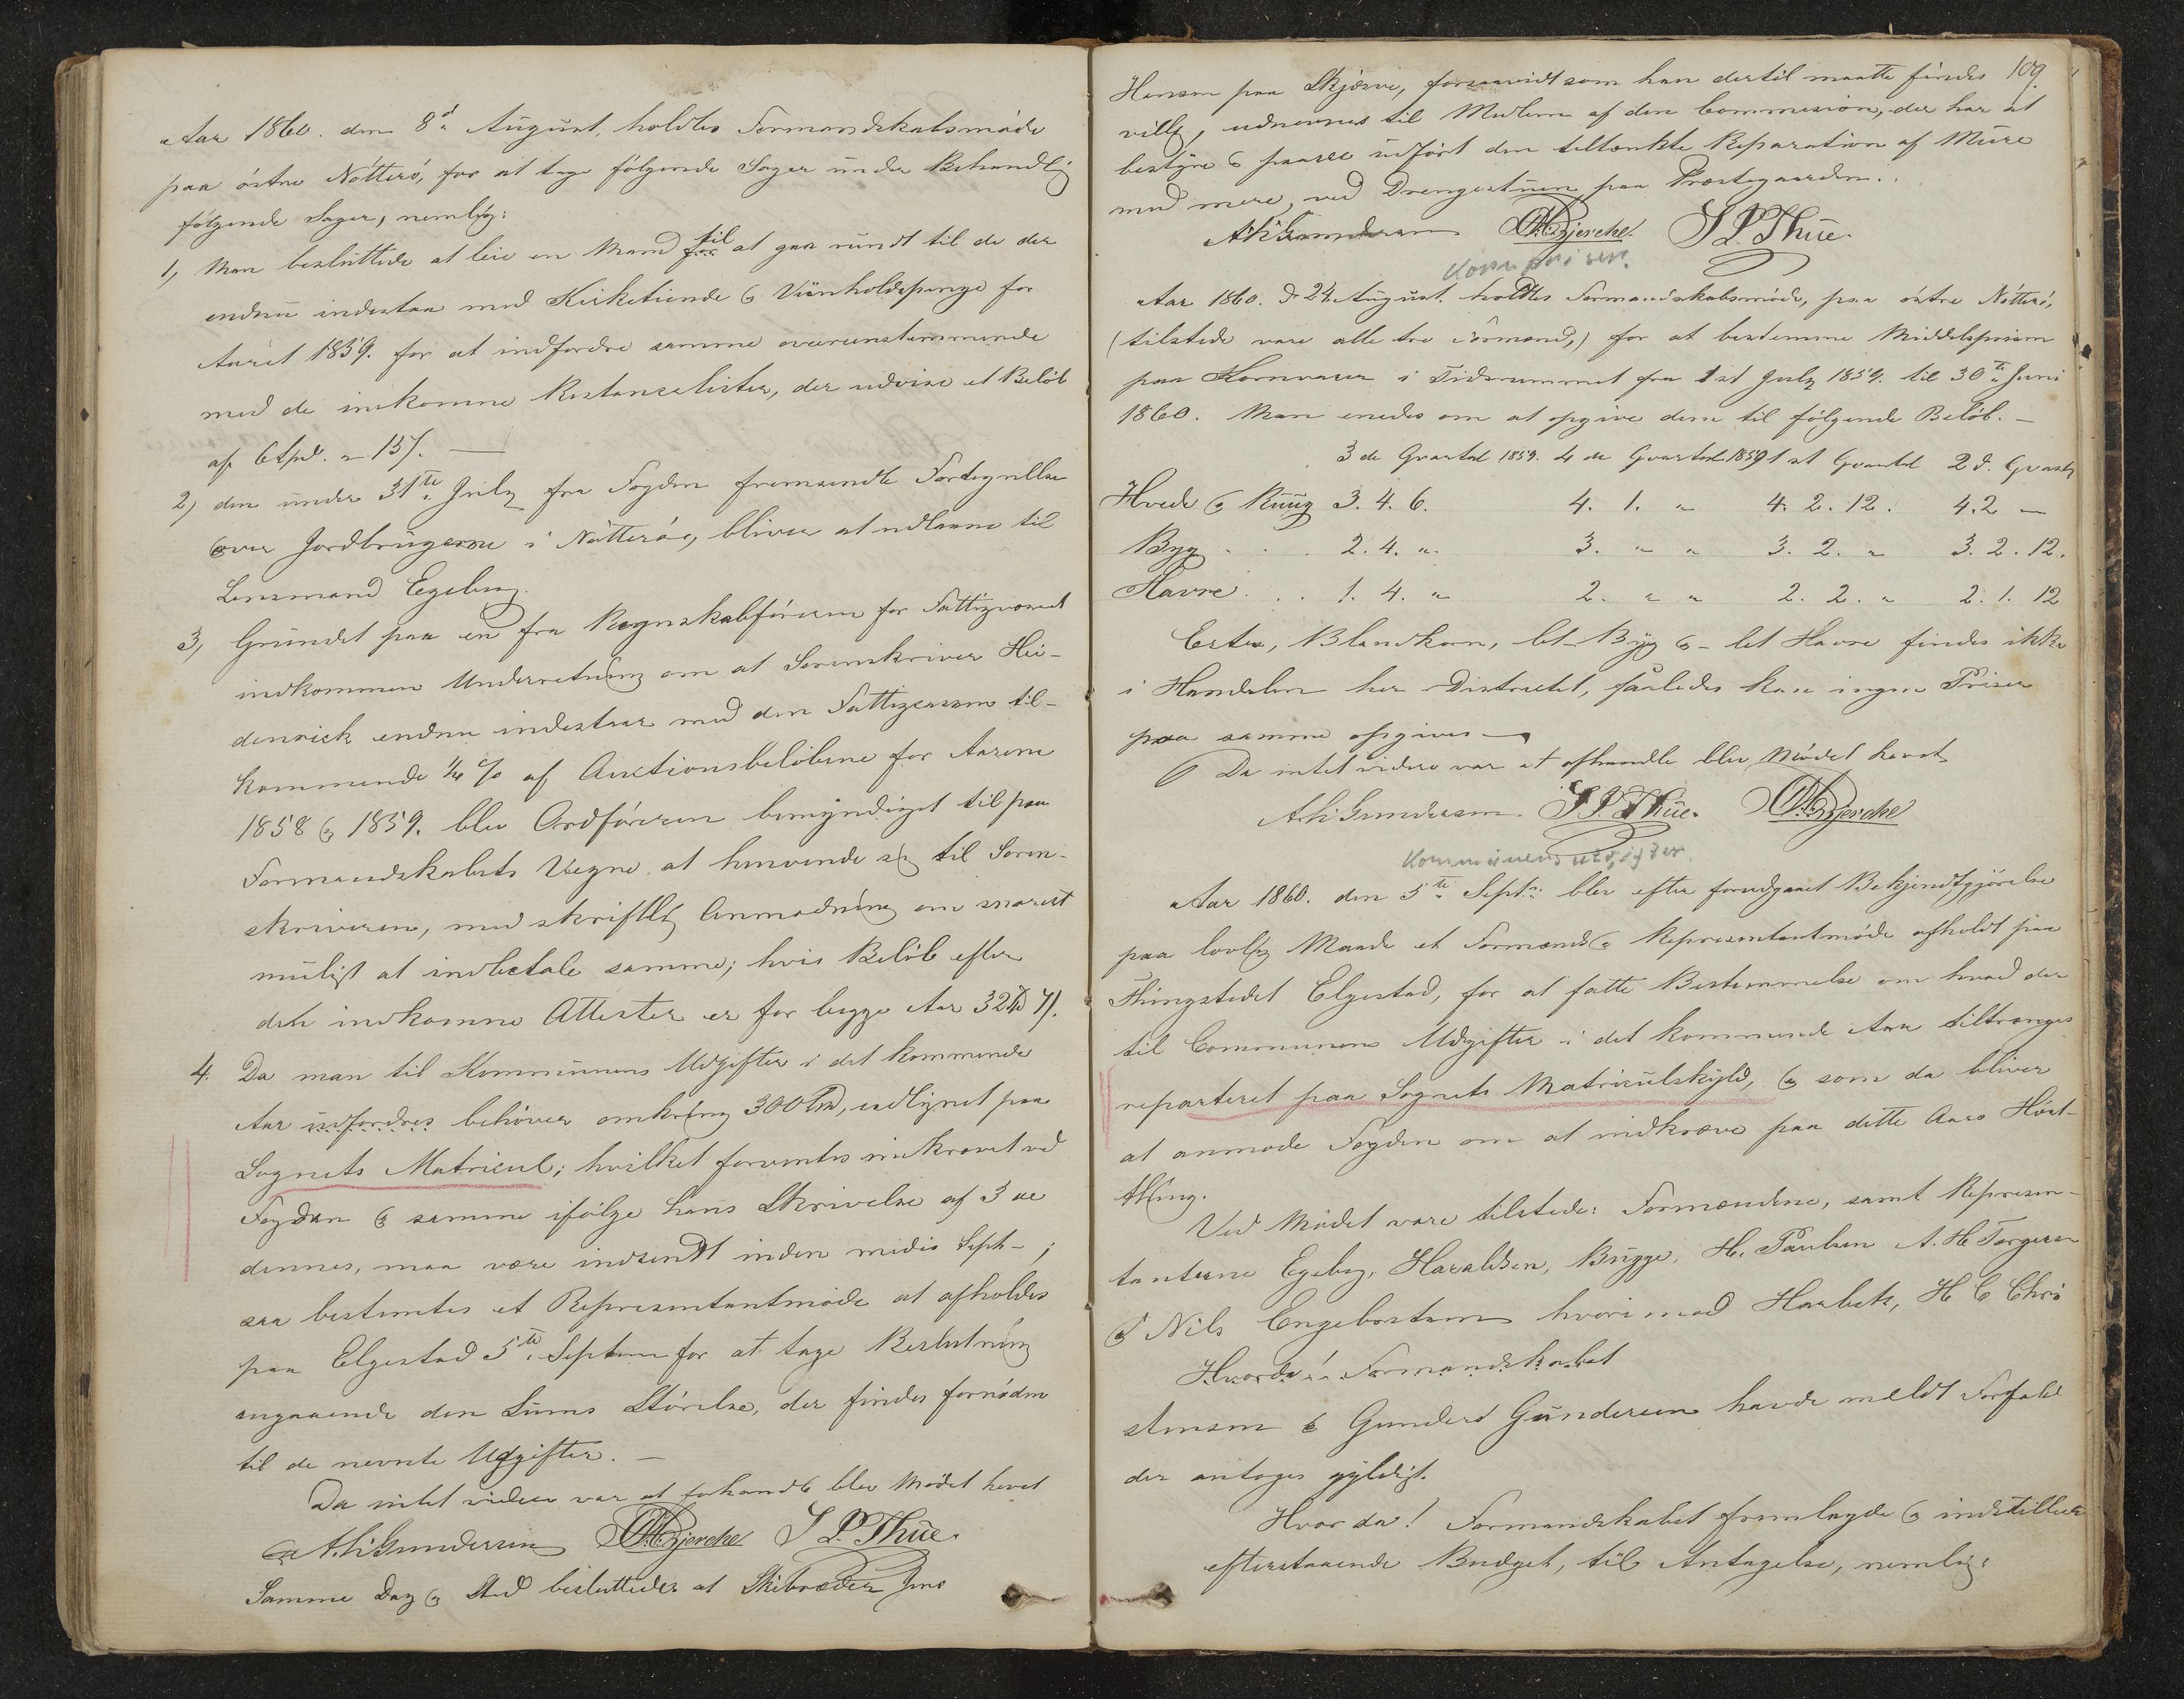 Aar 1860. den 8d August, holdtes Formandskabsmöde
paa östre Nötterö, for at tage fölgende Sager under Behandlig
fölgende Sager, nemlig:
1, Man besluttede at leie en Mand for til at gaa rundt til de der
endnu indestaa med Kirketiende og Vünholdspenge for
Aaret 1859. for at indfordre samme overensstemmende
med de indkomne Restanselister, der udvise et Belöb
af 6 Spd. " 15/. —
2, den under 31te July fra Fogden fremsendte Fortegnellse
over Jordbrugerne i Nötterö, bliver at udlaane til
Lensmand Egeberg.
3, Grundet paa en fra Regnskabföreren for Fattigvæsnet
indkommen Underretning om at Sorenskriver Hei-
denrick endnu indestaar med den Fattigcassen til-
kommende 1/4 % af Auctionsbelöbene for Aarene
1858 og 1859. blev Ordföreren bemyndiget til paa
Formandskabets Vegne at henvende sig til Soren-
skriveren, med skriftlig Anmodning om snarest
muligt at indbetale samme; hvis Belöb efter
deh indkomne Attester er for begge Aar 32 4/.
4. Da man til Kommunens Udgifter i det kommende
Aar indfordres behöver omkring 300 Spd, udlignet paa
Sognets Matricul; hvilket forventes indkrævet ved
Fogden og samme ifölge hans Skrivelse af 3 de
dennes, maa være indsendt inden medio Septr;
saa bestemtes et Representantmöde at afholdes
paa Elgestad 5te Septem for at tage Beslutning
angaaende den Sums Störelse, der findes fornöden
til de nevnte Udgifter. —
Da intet videre var at forhandle blev Mödet hevet
A.H. Gundersen O.Bjerche S P. Thue.
Samme Dag og Sted besluttedes at Skibræder Jens
109.
Hansen paa Skjærve, forsaavidt som han dertil maatte findes
villig, udnevnes til Medlem af den Commision, der har at
bestyre og paasee udfört den tiltænkte Reparation af Mure
med mere, ved Drengestuen paa Præstegaarden..
A.H. Gundersen O.Bjerche S P. Thue.
Kornpriser.
Aar 1860. d 24. August. holdtes Formandskabsmöde, paa östre Nötterö,
(tilstede vare alle tre Formænd,) for at bestemme Middelprisen
paa Kornvarer i Tidsrummet fra 1st July 1859. til 30te Juni
1860. Man enedes om at opgive dem til fölgende Belöb. —
3 de Qvartal 1859. 4 de Qvartal 1859 1 st Qvartal 2 d. Qvartal
Hvede og Ruug 3. 4. 6. 4. 1. " 4. 2. 12. 4. 2 —
Byg . . . 2. 4. " 3. " " 3. 2. " 3. 2. 12.
Havre . . . 1. 4. " 2. " " 2. 2. " 2. 1. 12
Erter, Blandkorn, let Byg og let Havre findes ikke
i Handelen her Distrectet, saaledes kan ingen Priser
paa samme opgives —
Da intet videre var at afhandle blev Mödet hevet
A.H. Gundersen S P. Thue. O.Bjerche
Kommunens utgifter.
Aar 1860. den 5te Septr: blev efter forudgaaet Bekjendtgjörelse
paa lovlig Maade et Formands og Representantmöde afholdt paa
Thingstedet Elgestad, for at fatte Bestemmelse om hvad der
til Communens Udgifter i det kommende Aar tiltrænges
reparteret paa Sognets Matriculskyld, og som da bliver
at anmode Fogden om at indkræve paa dette Aars Höst-
thing.
Ved Mödet vare tilstede: Formændene, samt Represen-
tanterne Egeberg, Haraldsen, Bugge, H. Paulsen A. H. Torgersen
og Nils Engebortsen hvorimod Harbets, H C Chri
Hvorda! Formandskabet
stensen og Gunder Gundersen havde meldt Forfald
der antages gyldigt.
Hvor da! Formandskabet fremlagde og indstillede
efterstaaende Budget, til Antagelse, nemlig: